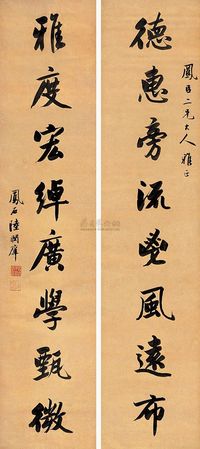 鳳二兄大人雅正
德惠旁流風遠布
雅度宏綽廣學甄微
鳳石陸潤庠